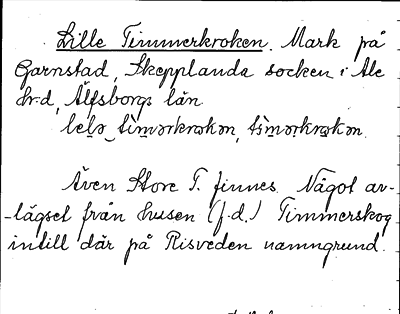 Lille Timmerkroken. Mark på
Garnstad, Skepplanda socken i Ale
hr-d, Älfsborgs län.
Även Store T. finnes. Något av-
-lägset från husen (f.d.) Timmerskog
intill där på Risveden namngrund.